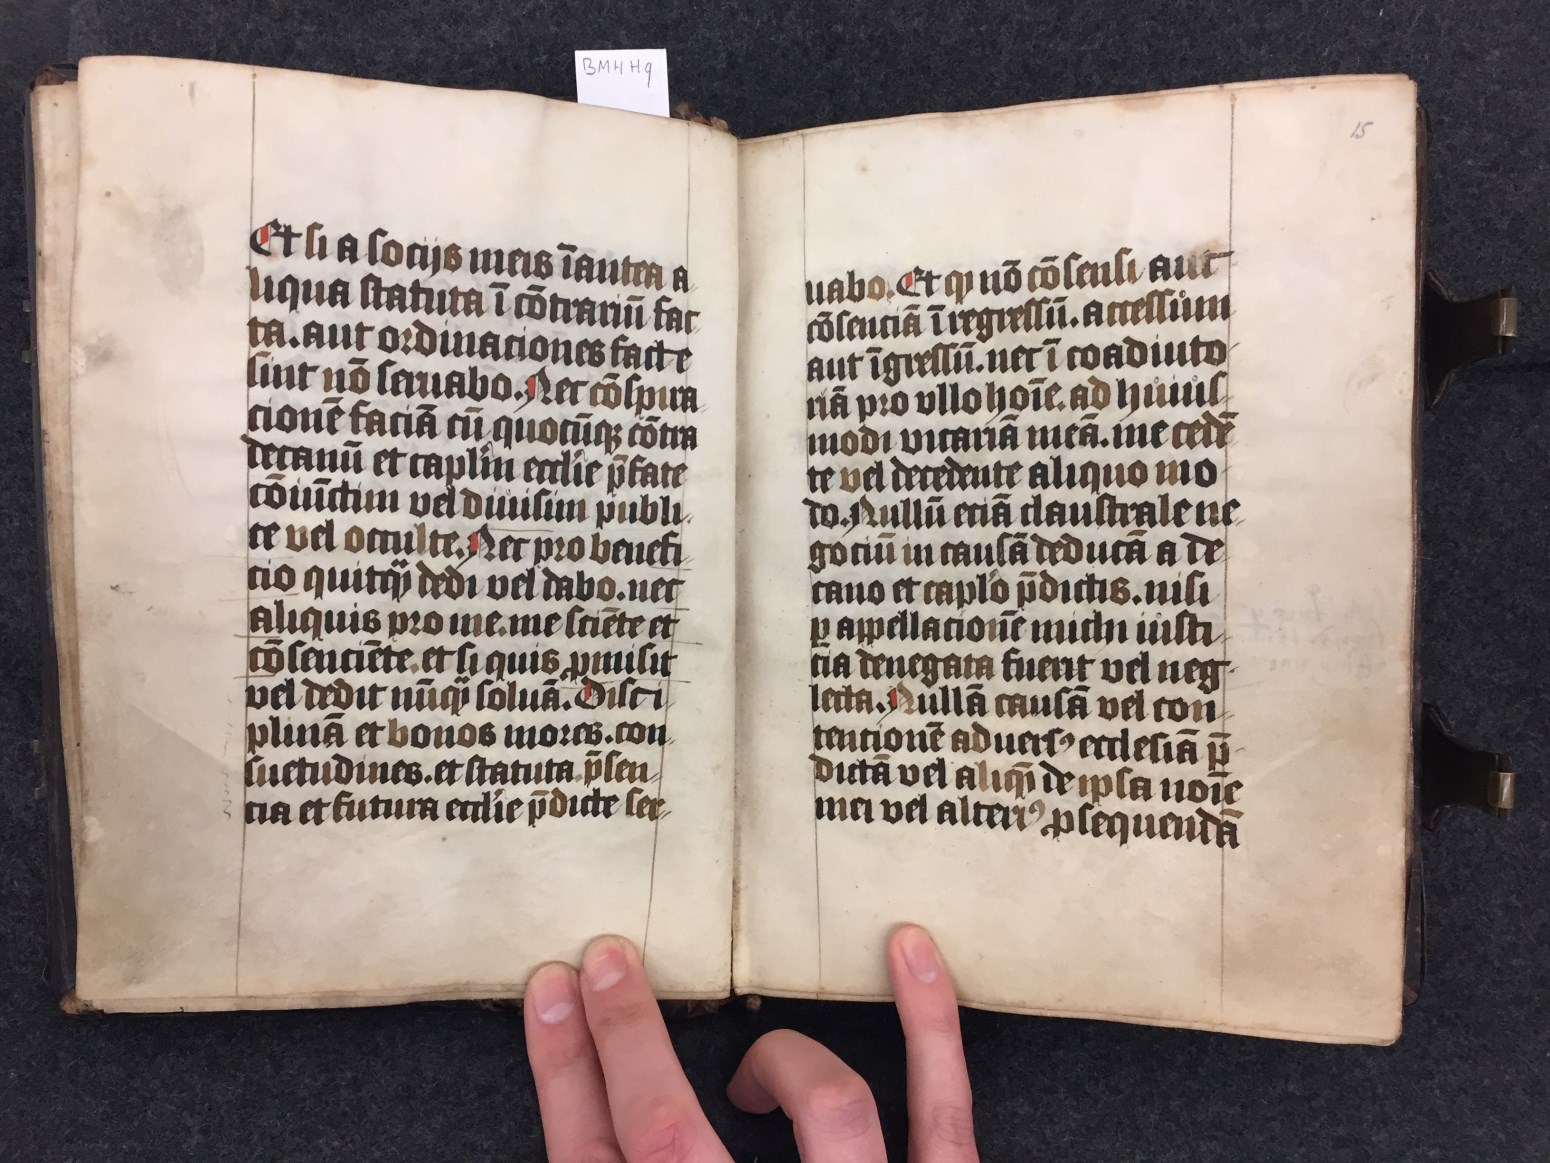 BM4 H9
Et si a socijs meis īantea a
liqua statuta ī cōtrariū fac
ta. aut ordinaciones facte
sint nō seruabo. Nec cōspira
cionē faciā cū quocūqꝫ cōtra
decanū et caplm̄ ecclīe p̄fate
cōiūctim vel diuisim publi
ce vel occulte. Nec pro benefi
cio quitqͣȝ dedi vel dabo. nec
aliquis pro me. me sciēte et
cōsenciēte. et si quis ꝓmisit
vel dedit nūqͣȝ soluā. Disci
plinā et bonos mores. con
suetudines. et statuta p̄sen
cia et futura ecclīe p̄dicte ser
15
uabo. Et qꝫ nō cōsensi aut
cōsenciā ī regressū. accessum
aut īgressū. nec ī coadiuto
riā pro vllo hoīe. ad huius
modi vicariā meā. me cedē
te vel decedente aliquo mo
do. Nullū eciā claustrale ne
gociū in causā deducā a de
cano et caplo p̄dictis. nisi
ꝑ appellacionē michi iusti
cia denegata fuerit vel neg
lecta. Nullā causā vel con
tencionē aduersꝰ ecclesiā p̄
dictā vel aliqͣȝ de ipsa noīe
mei vel alteriꝰ ꝓsequendā